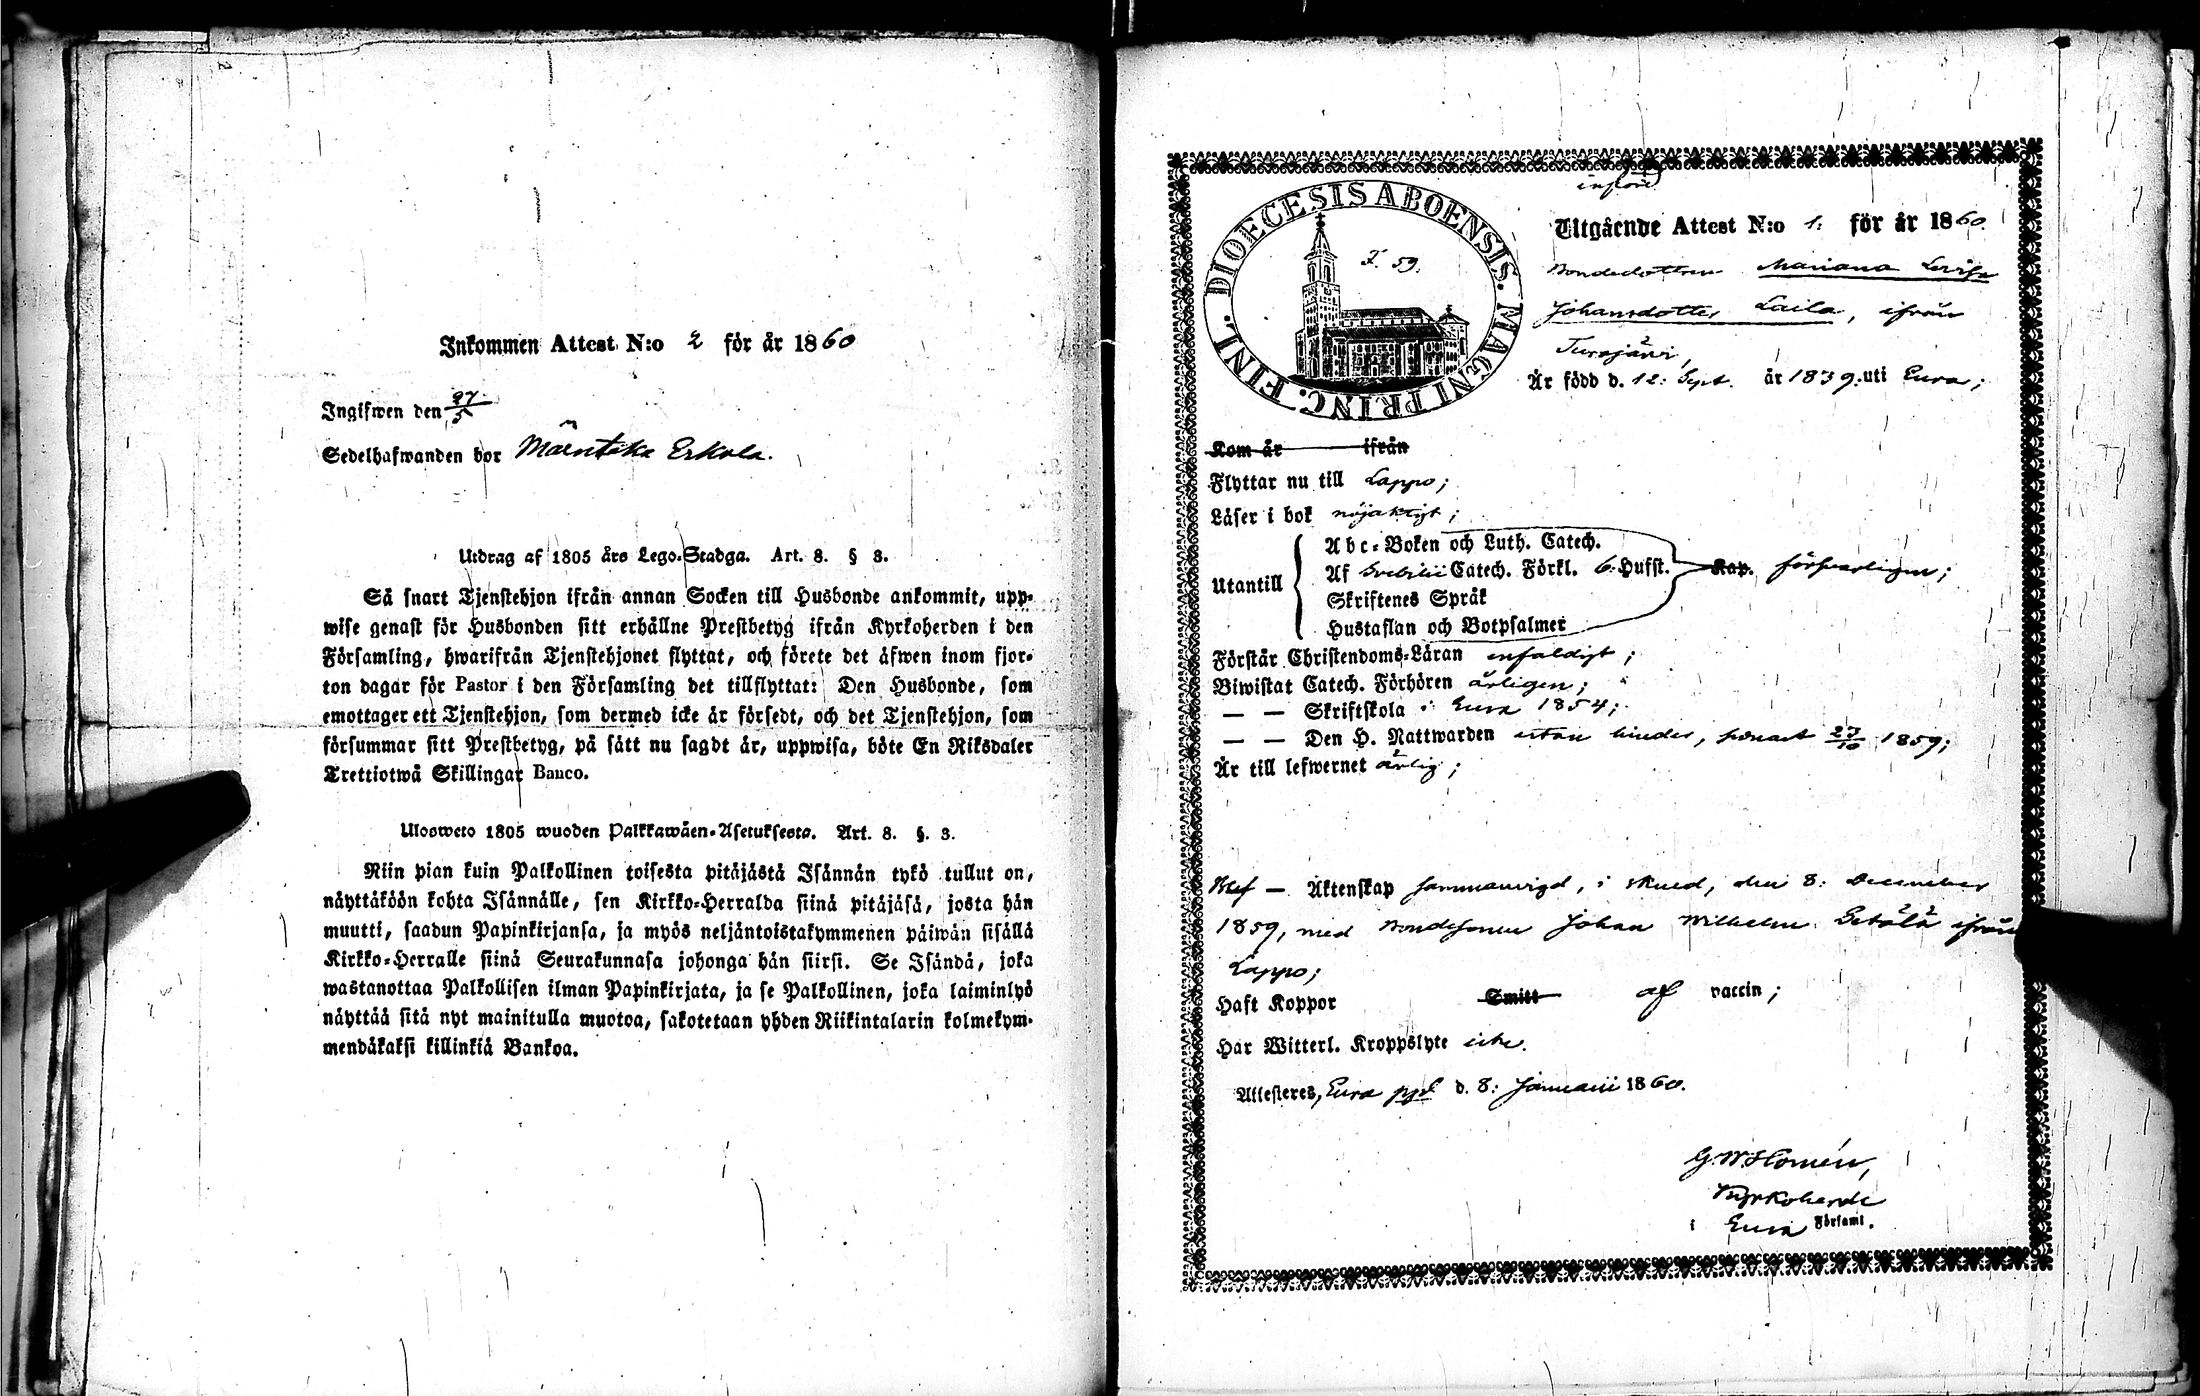 Inkommen Attest N:o 2 för år 1860
Ingifwen den 27/5
Sedelhafwanden bor Mäentaka Erkola.
Utdrag af 1805 års Lego-Stadga. Art. 8. § 3.
Så snart Tjenstehjon ifrån annan Socken till Husbonde ankommit, upp-
wise genast för Husbonden sitt erhållne Prestbetyg ifrån Kyrkoherden i den
Församling, hwarifrån Tjenstehjonet flyttat, och förete det äfwen inom fjor-
ton dagar för Pastor i den Församling det tillflyttat: Den Husbonde, som
emottager ett Tjenstehjon, som dermed icke är försedt, och det Tjenstehjon, som
försummar sitt Prestbetyg, på sätt nu sagdt är, uppwisa, böte En Riksdaler
Trettiotwå Skillingar Banco.
Ulosweto 1805 wuoden Palkkawäen-Asetuksesta. Art. 8. §. 3.
Niin pian kuin Palkollinen toisesta pitäjästä Isännän tykö tullut on,
näyttäköön kohta Isännälle, sen Kirkko-Herralda siinä pitäjäsä, josta hän
muutti, saadun Papinkirjansa, ja myös neljäntoistakymmenen päiwän sisällä
Kirkko-Herralle siinä Seurakunnasa johonga hän siirsi. Se Isändä, joka
wastanottaa Palkollisen ilman Papinkirjata, ja se Palkollinen, joka laiminlyö
näyttää sitä nyt mainitulla muotoa, sakotetaan yhden Riikintalarin kolmekym-
mendäkaksi killinkiä Bankoa.
införd
DIOECESIS ABOENSIS. MAGNI PRINC. FINL.
F. 59.
Utgående Attest N:o 1: för år 1860.
Bondedottren Mariana Lovisa
Johansdotter Laila, ifrån
Turajärvi,
Är född d. 12: Sept. år 1839: uti Eura;
Kom år ifrån
Flyttar nu till Lappo;
Läser i bok nöjaktigt;
Utantill
Abc-Boken och Luth. Catech.
Af Svebilii Catech. Förkl. 6. Hufst. Kap. försvarligen;
Skriftenes Språk
Hustaflan och Botpsalmer
Förstår Christendoms-Läran enfaldigt;
Biwistat Catech. Förhören årligen;
— — Skriftskola i Eura 1854;
— — Den H. Nattwarden utan hinder, senast 23/10 1859;
Är till lefwernet ärlig;
Blef — Äktenskap sammanvigd, i Eura, den 8: December
1859, med Bondesonen Johan Wilhelm Setälä ifrån
Lappo;
Haft Koppor Smitt af vaccin;
Har Witterl. Kroppslyte icke.
Attesteres, Eura ppd d. 8: Januarii 1860.
G. W. Homén,
Kyrkoherde
i Eura Församl.